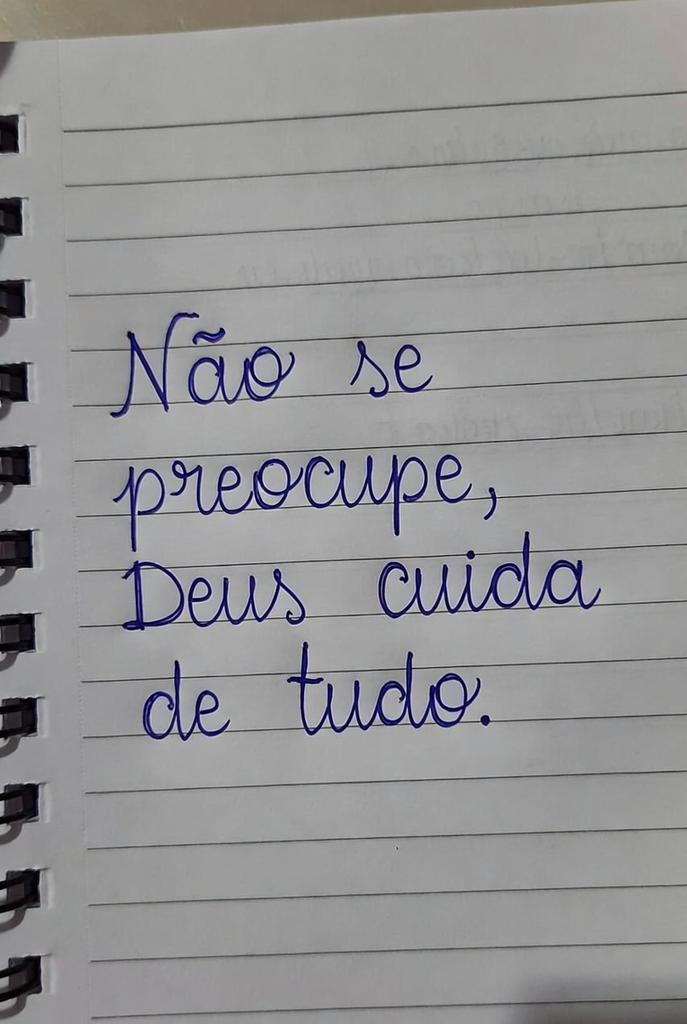 Não se
preocupe,
Deus cuida
de tudo.